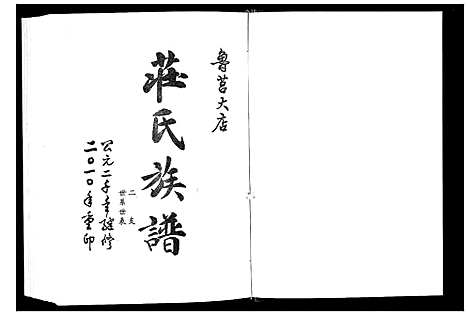 魯莒大店
莊氏族譜
二支
世系世表
公元二千年續修
二〇一〇年重印